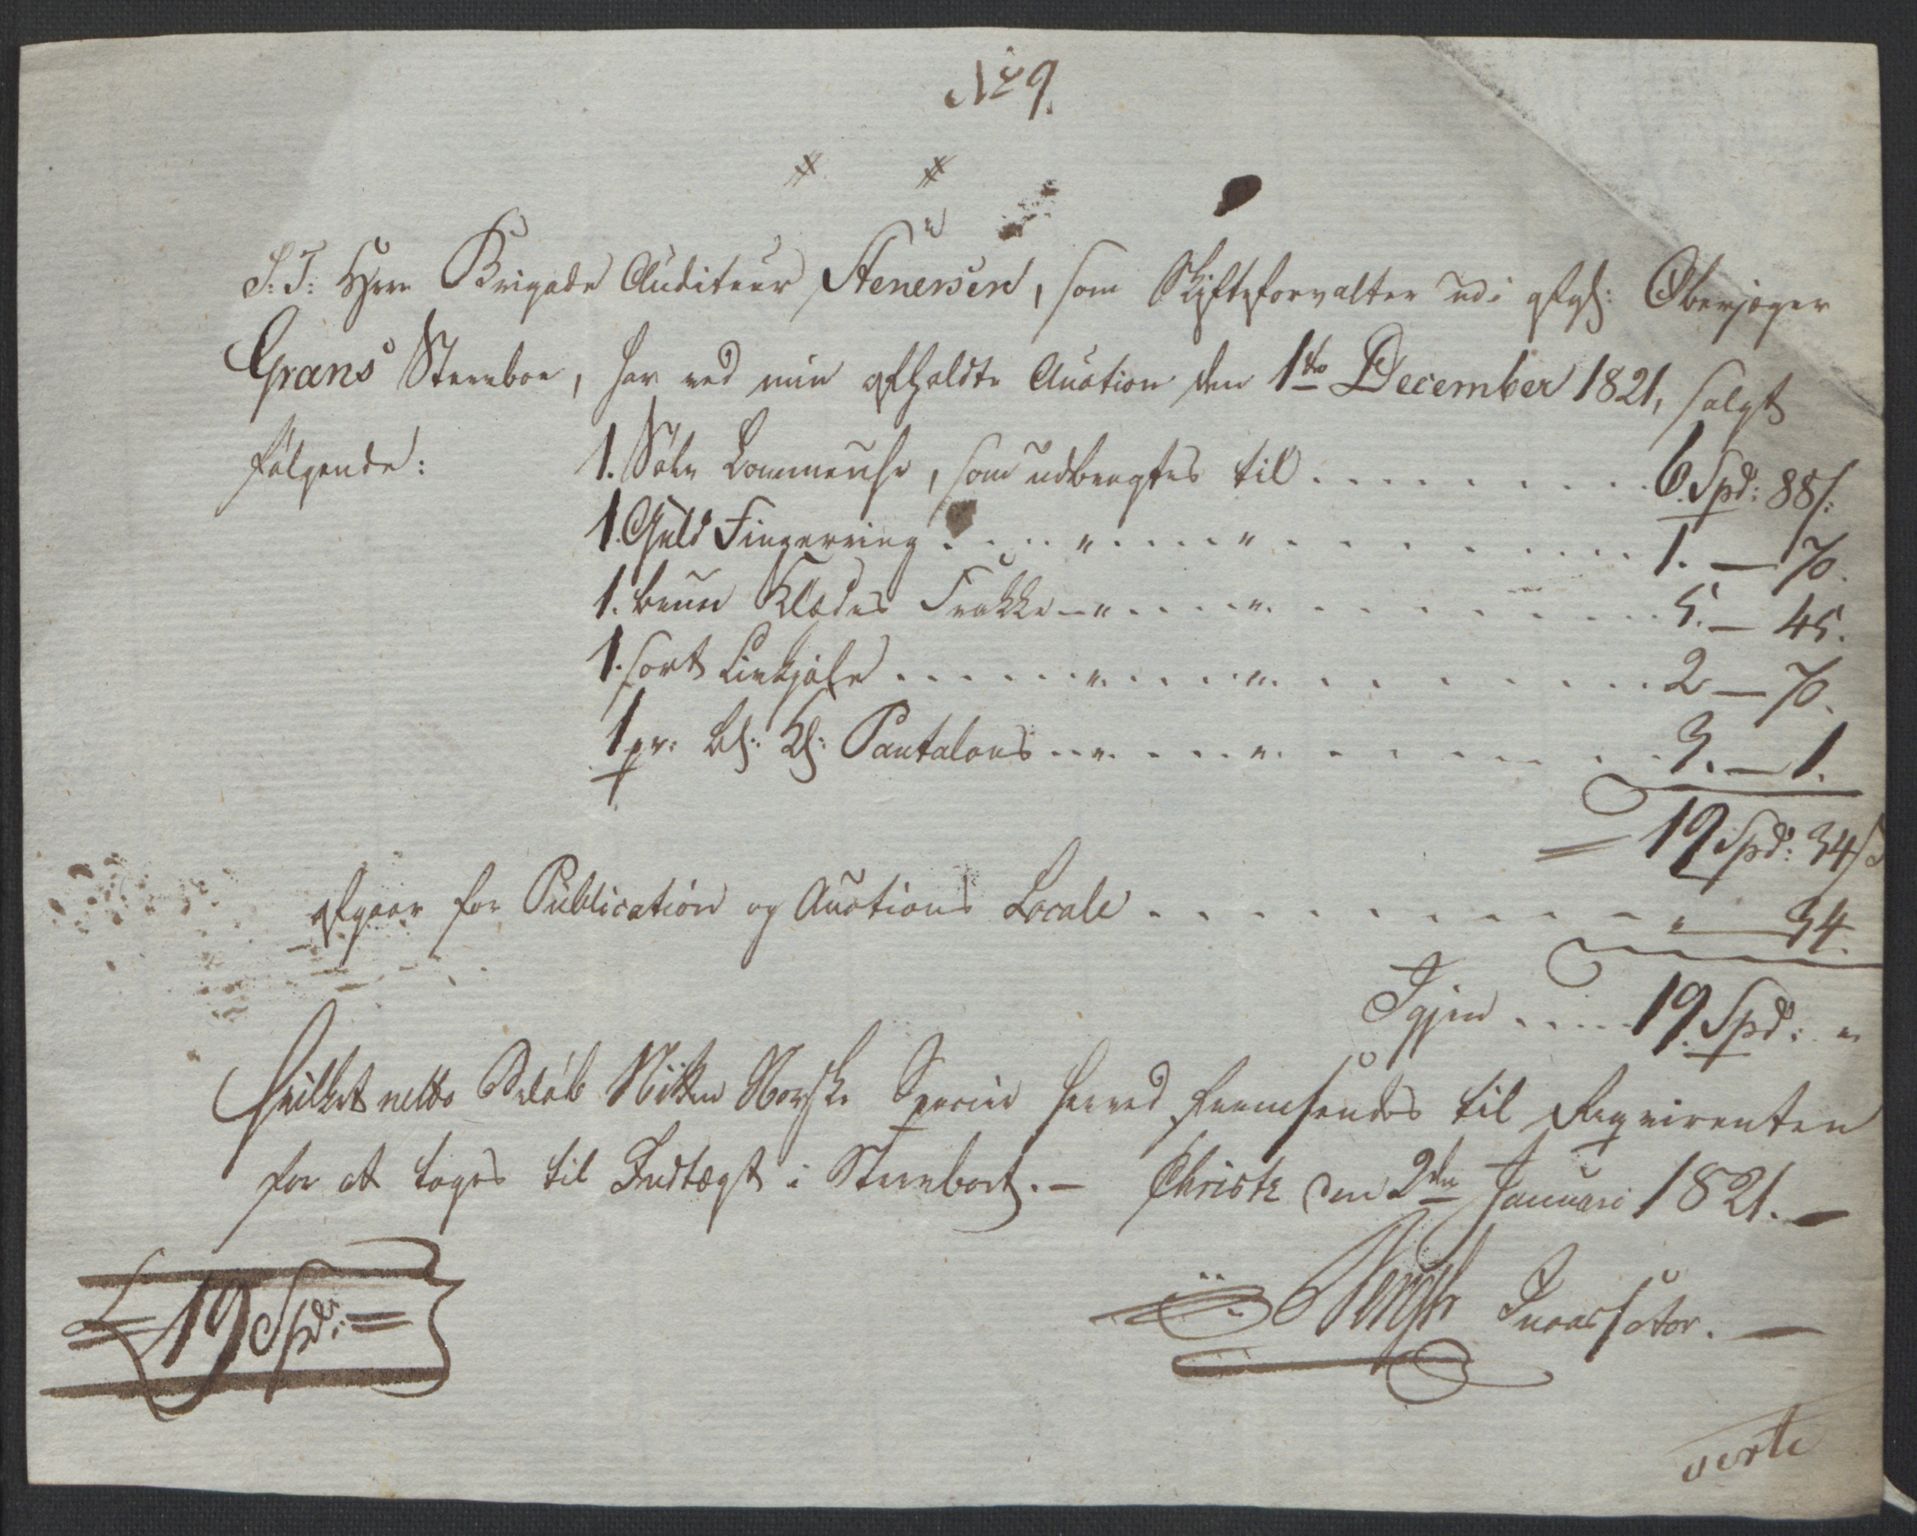 No 9.
S: T: Herr Brigade Auditeur Stenersen, som Skifteforvalter udi afg: Oberjæger
Grans Stervboe, har ved min afholdte Auction den 1ste December 1821, solgt
følgende: 1. Sølv Lommeuhr, som udbragtes til . . . . . . . . . 6 Spd: 88 s:
1. Guld Fingerring . . . . " . . . . " . . . . . . . . 1. — 70.
1. bruun Klædes Frakke — " . . . . " . . . . . . . . 5. — 45.
1. sort Livkjole . . . . . . " . . . . " . . . . . . . . 2 — 70.
1 pr: bl: Kl: Pantalons . . " . . . . " . . . . . . . . 3. — 1.
= 19 Spd: 34 s
afgaar for Publication og Auctions Locale . . . . . . . . . " — 34.
Igjen . . . . . 19 Spd: "
Hvilket netto Beløb Nitten Norske Specier herved fremsendes til Reqvirenten
for at tages til Indtægt i Stervboet. — Christ: den 2den Januari 1821. —
= 19 Spd: =
Incassator. —
verte